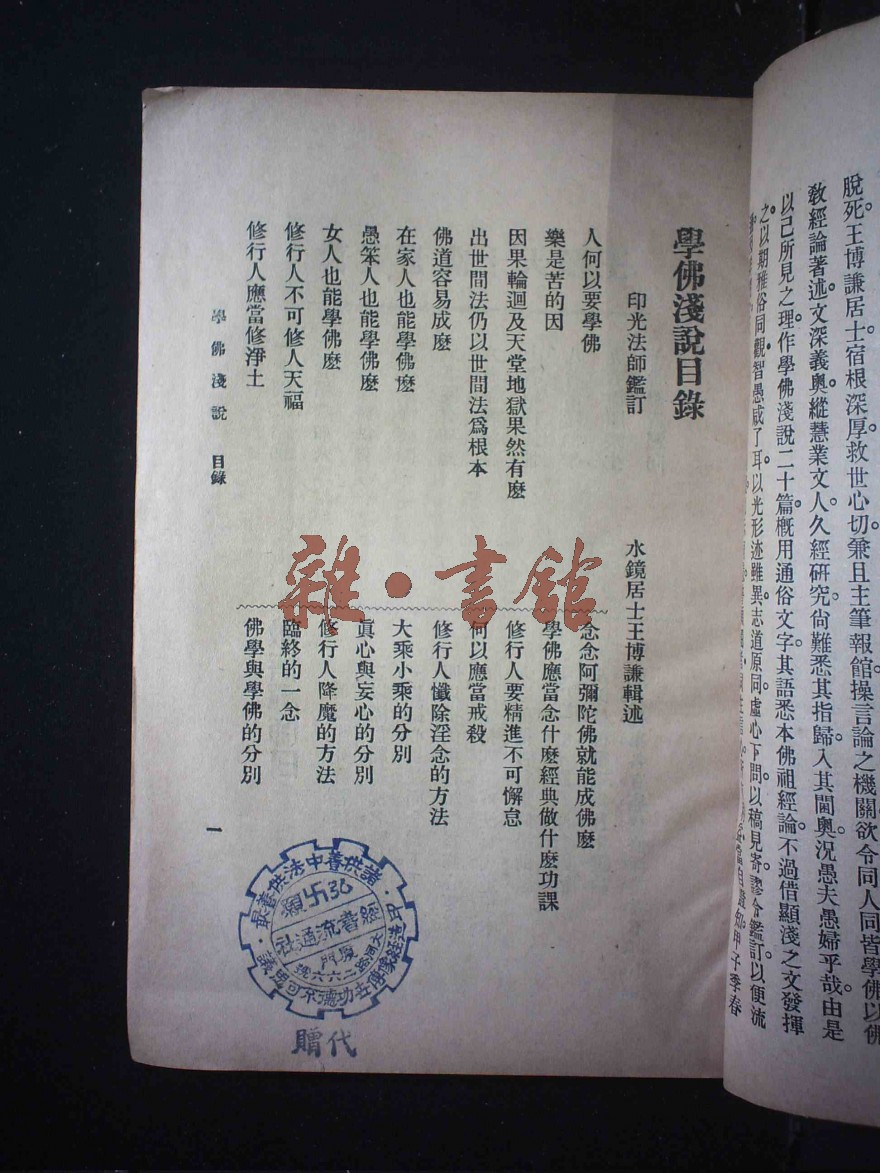 脫死。王博謙居士宿根深厚。救世心切。兼且主筆報館。操言論之機關。欲令同人同皆學佛以佛
教經論著述。文深義奧。縱慧業文人。久經研究。尙難悉其指歸。入其閫奧。況愚夫愚婦乎哉。由是
以己所見之理。作學佛淺說二十篇。槪用通俗文字。其語悉本佛祖經論。不過借顯淺之文發揮
之。以期雅俗同觀。智愚咸了耳。以光形迹雖異。志道原同。虛心下問。以稿見寄。令鑑訂。以便流
自證知。甲子季春
學佛淺說目錄
印光法師鑑訂
水鏡居士王博謙輯述
人何以要學佛
樂是苦的因
因果輪迴及天堂地獄果然有麽
出世間法仍以世間法爲根本
佛道容易成麽
在家人也能學佛麽
愚笨人也能學佛麽
女人也能學佛麽
修行人不可修人天福
修行人應當修淨土
念念阿彌陀佛就能成佛麽
學佛應當念什麽經典做什麽功課
修行人要精進不可懈怠
何以應當戒殺
修行人懺除淫念的方法
大乘小乘的分別
眞心與妄心的分別
修行人降魔的方法
臨終的一念
佛學與學佛的分別
學佛淺說 目錄
一
雜·書館
諸供養中法供養最
弘卍願
經書流通社
廈門
代贈